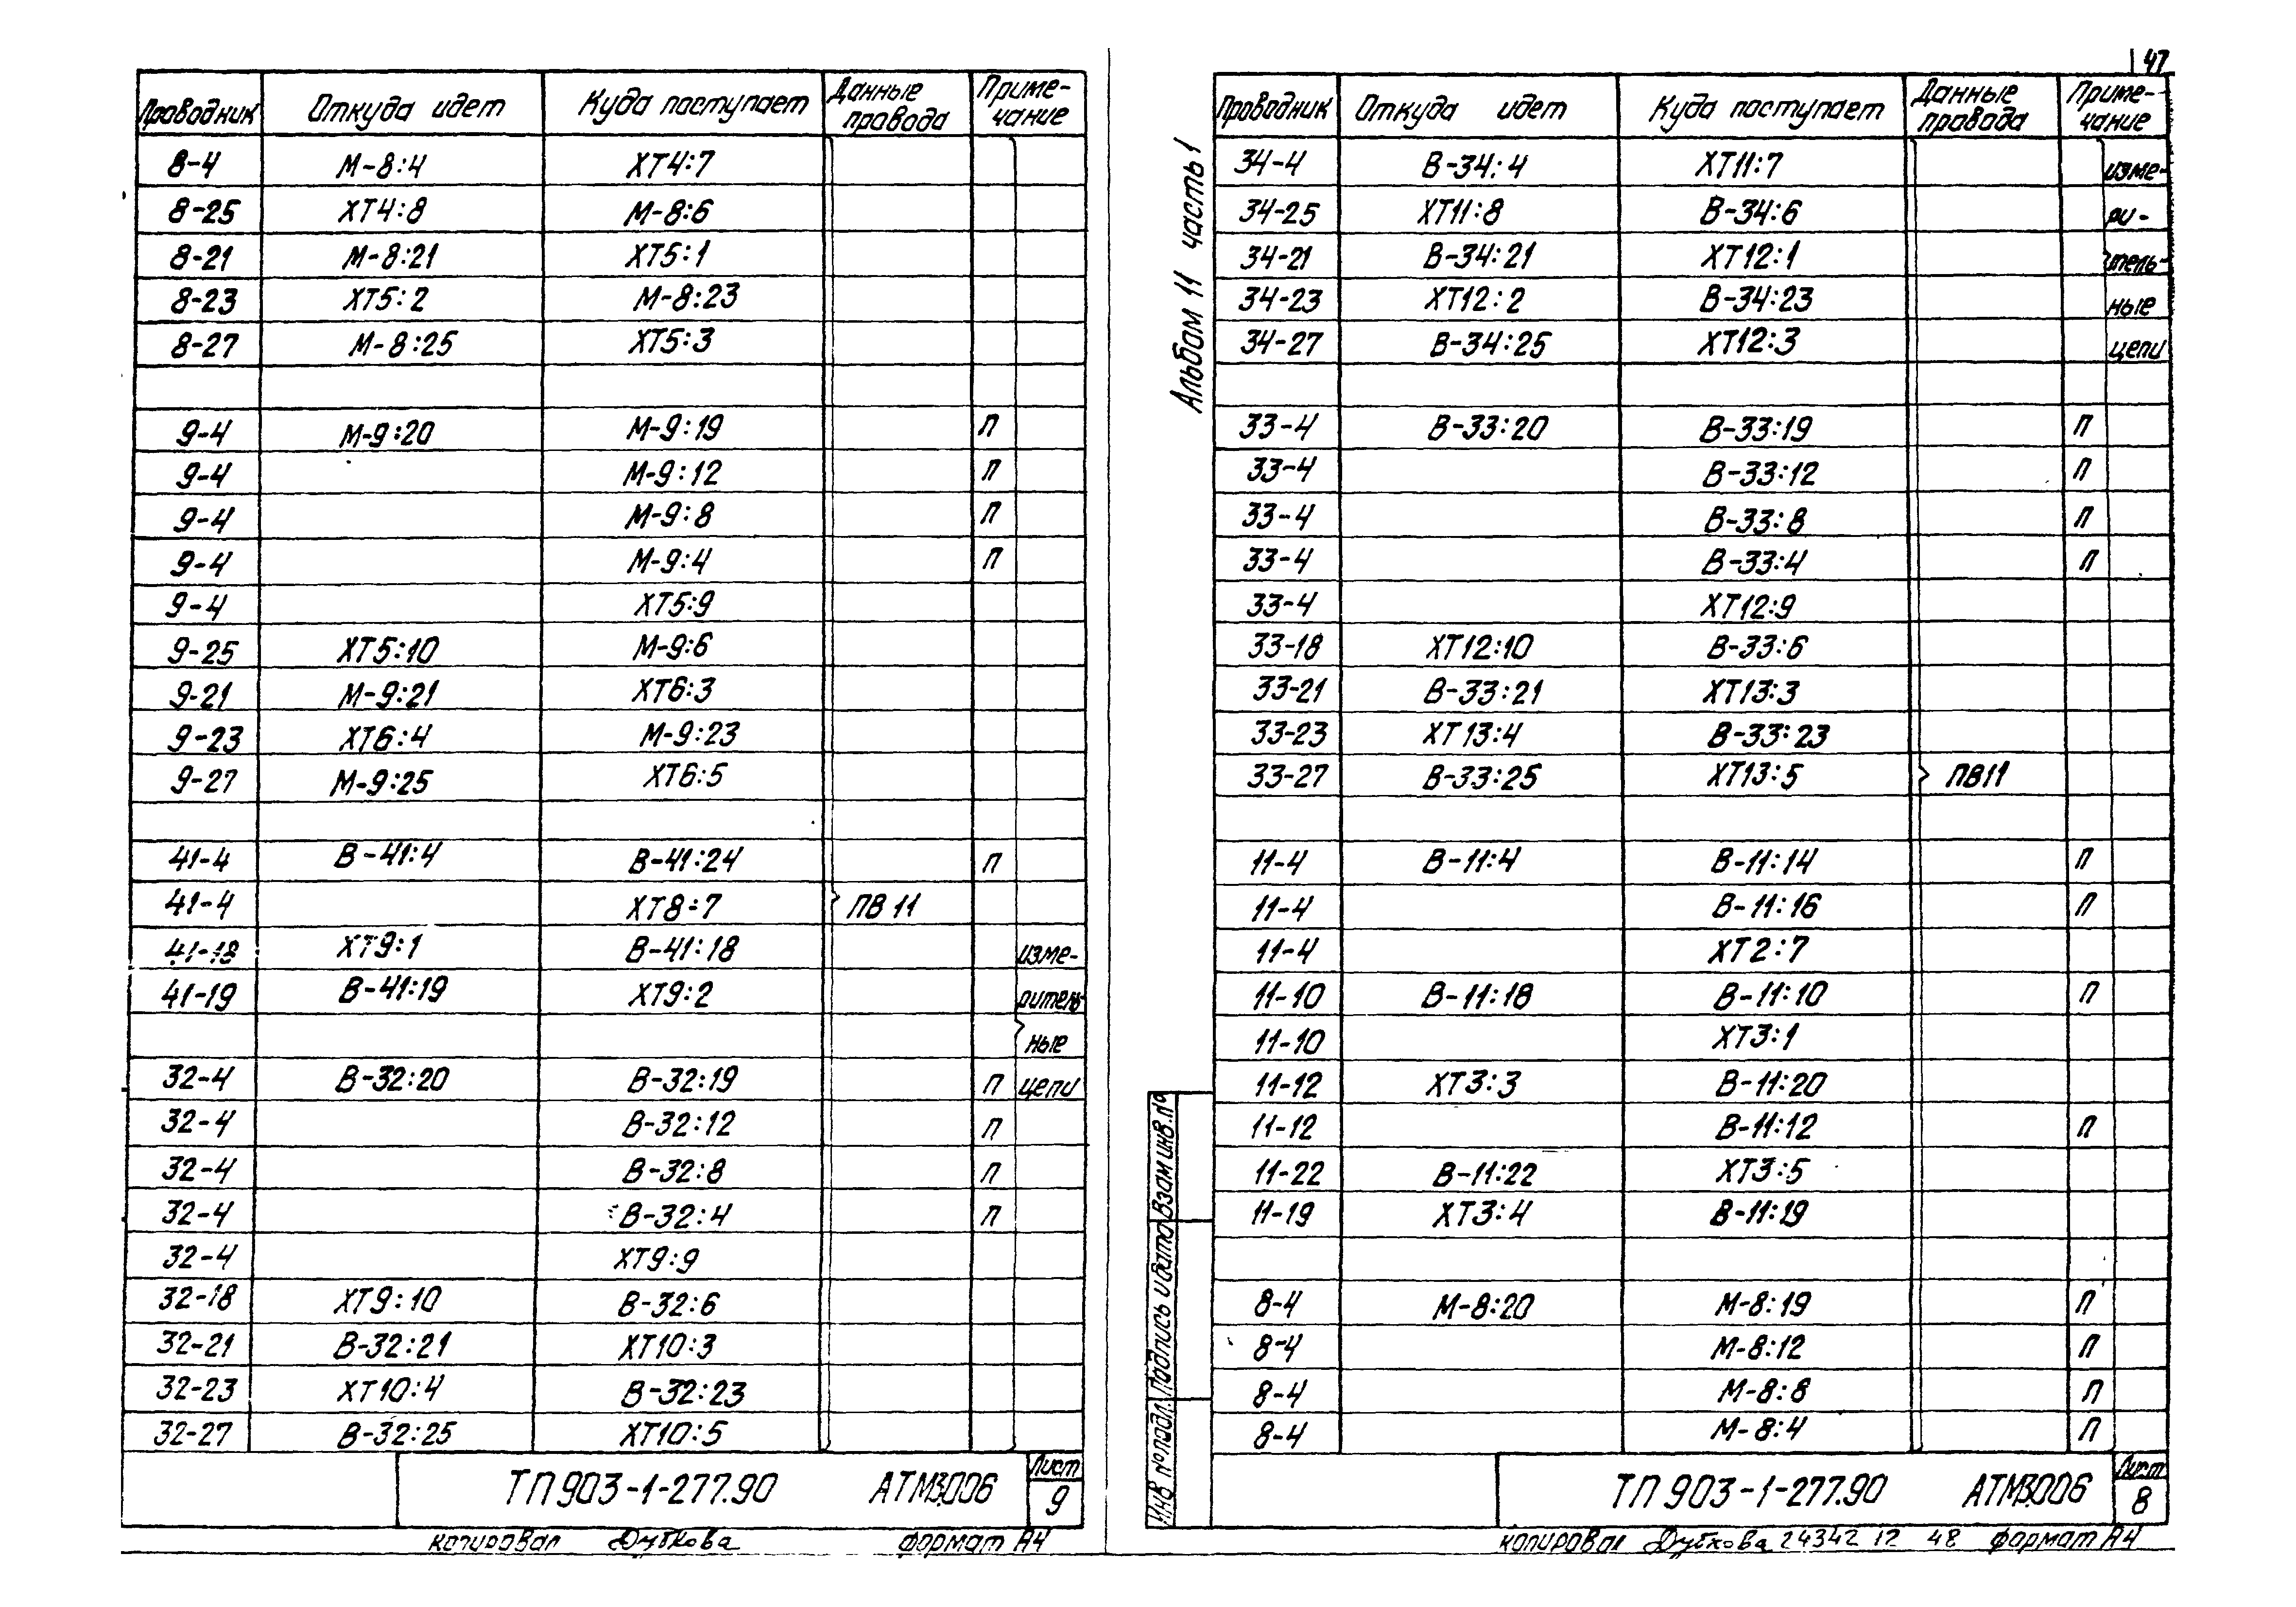 Проводник Откуда идет Куда поступает Данные провода Примечание
8-4 М-8:4 ХТ4:7
8-25 ХТ4:8 М-8:6
8-21 М-8:21 ХТ5:1
8-23 ХТ5:2 М-8:23
8-27 М-8:25 ХТ5:3
9-4 М-9:20 М-9:19 П
9-4 М-9:12 П
9-4 М-9:8 П
9-4 М-9:4 П
9-4 ХТ5:9
9-25 ХТ5:10 М-9:6
9-21 М-9:21 ХТ6:3
9-23 ХТ6:4 М-9:23
9-27 М-9:25 ХТ6:5
41-4 В-41:4 В-41:24 П
41-4 ХТ8:7 ПВ 11
41-18 ХТ9:1 В-41:18 изме-
41-19 В-41:19 ХТ9:2 ритель
ные
32-4 В-32:20 В-32:19 П цепи
32-4 В-32:12 П
32-4 В-32:8 П
32-4 В-32:4 П
32-4 ХТ9:9
32-18 ХТ9:10 В-32:6
32-21 В-32:21 ХТ10:3
32-23 ХТ10:4 В-32:23
32-27 В-32:25 ХТ10:5
ТП 903-1-277.90 АТМ3.006 Лист 9
копировал Дубкова формат А4
47
Альбом 11 часть 1
Проводник Откуда идет Куда поступает Данные провода Примечание
34-4 В-34:4 ХТ11:7 изме-
34-25 ХТ11:8 В-34:6 ри-
34-21 В-34:21 ХТ12:1 тель-
34-23 ХТ12:2 В-34:23 ные
34-27 В-34:25 ХТ12:3 цепи
33-4 В-33:20 В-33:19 П
33-4 В-33:12 П
33-4 В-33:8 П
33-4 В-33:4 П
33-4 ХТ12:9
33-18 ХТ12:10 В-33:6
33-21 В-33:21 ХТ13:3
33-23 ХТ13:4 В-33:23
33-27 В-33:25 ХТ13:5 ПВ11
11-4 В-11:4 В-11:14 П
11-4 В-11:16 П
11-4 ХТ2:7
11-10 В-11:18 В-11:10 П
11-10 ХТ3:1
11-12 ХТ3:3 В-11:20
11-12 В-11:12 П
11-22 В-11:22 ХТ3:5
11-19 ХТ3:4 В-11:19
8-4 М-8:20 М-8:19 П
8-4 М-8:12 П
8-4 М-8:8 П
8-4 М-8:4 П
Инв № подл. Подпись и дата Взам инв. №
ТП 903-1-277.90 АТМ3.006 Лист 8
копировал Дубкова 24342 12 48 формат А4